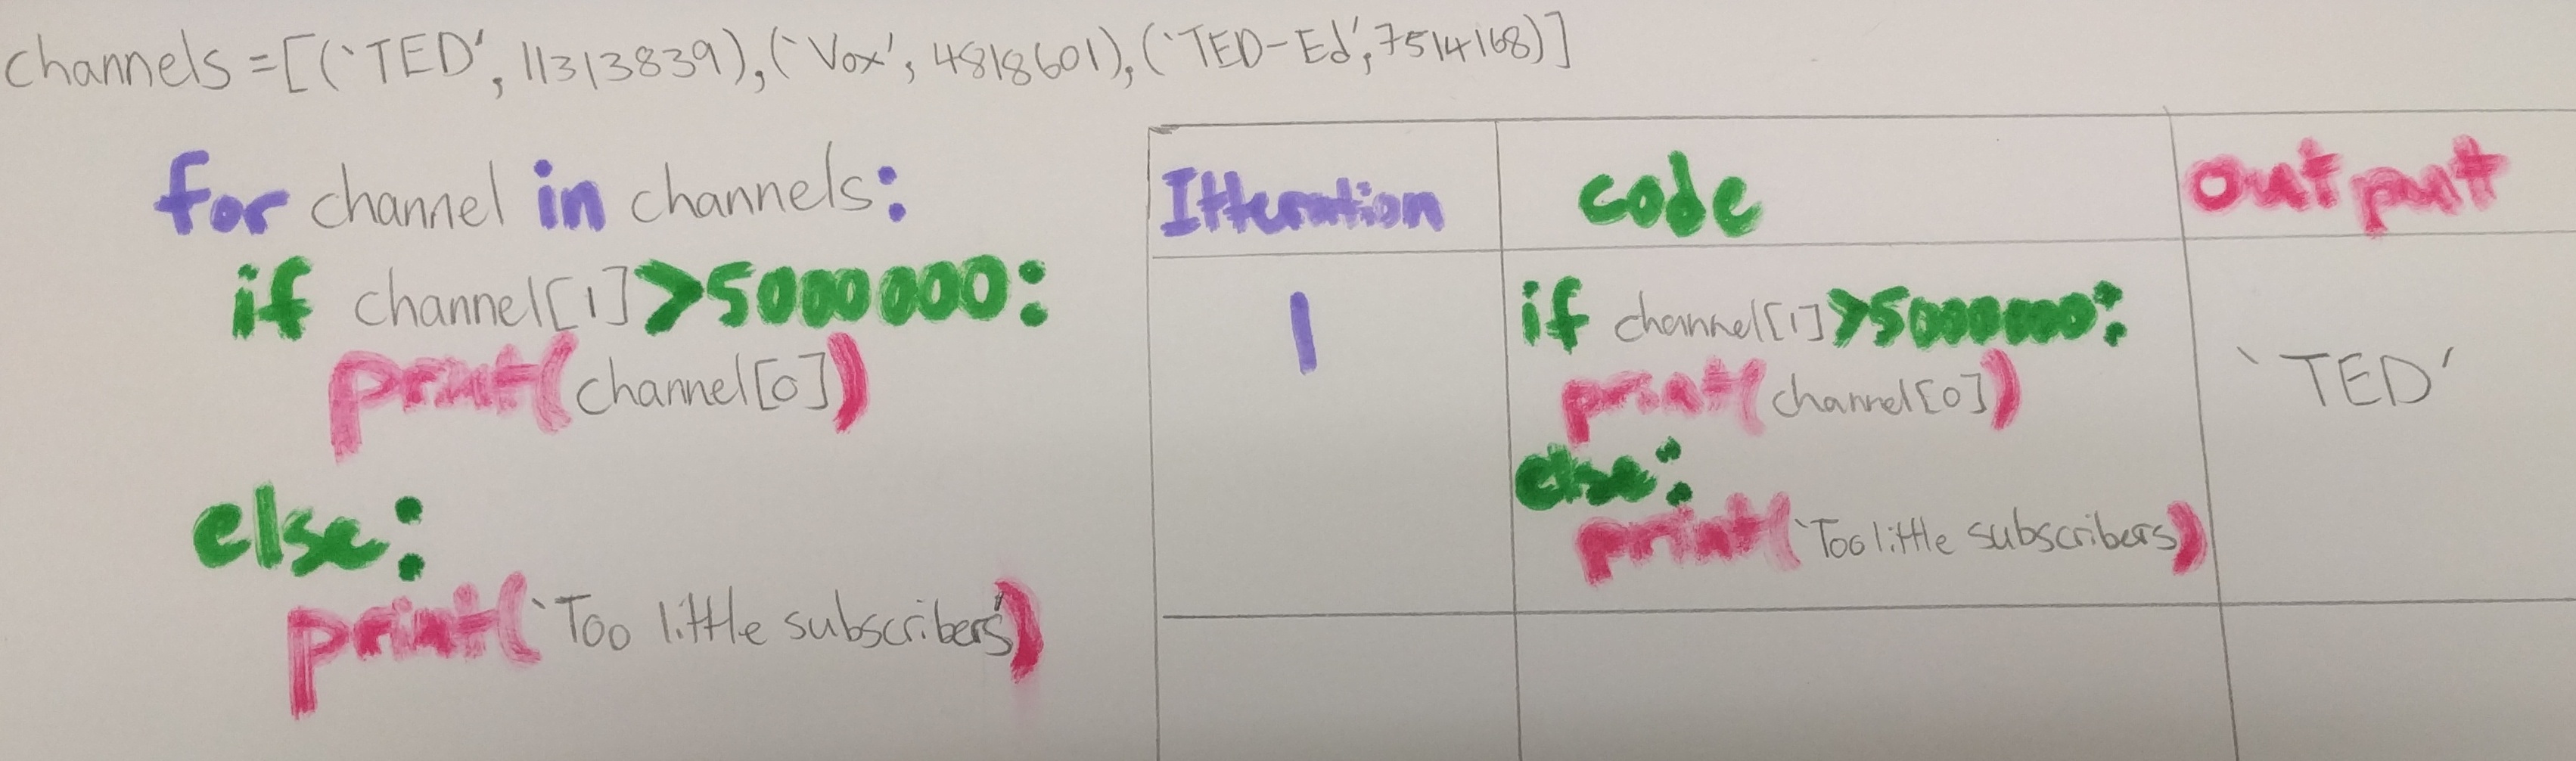 channels =[(‘TED’, 11313839),(‘Vox’, 4818601),(‘TED-Ed’,7514168)]
for channel in channels:
if channel[1]>5000000:
print(channel[0])
else:
print(‘Too little subscribers’)
Itteration code output
1
if channel[1]>5000000:
print(channel[0])
else:
print(‘Too little subscribers)
‘TED’